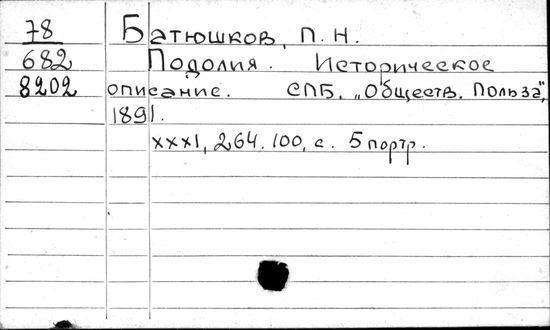 78 Батюшков, П. Н.
682 Подолия. Историческое
8202 описание. СПБ. „Обществ. Польза",
1891.
XXXI, 264. 100, с. 5 портр.